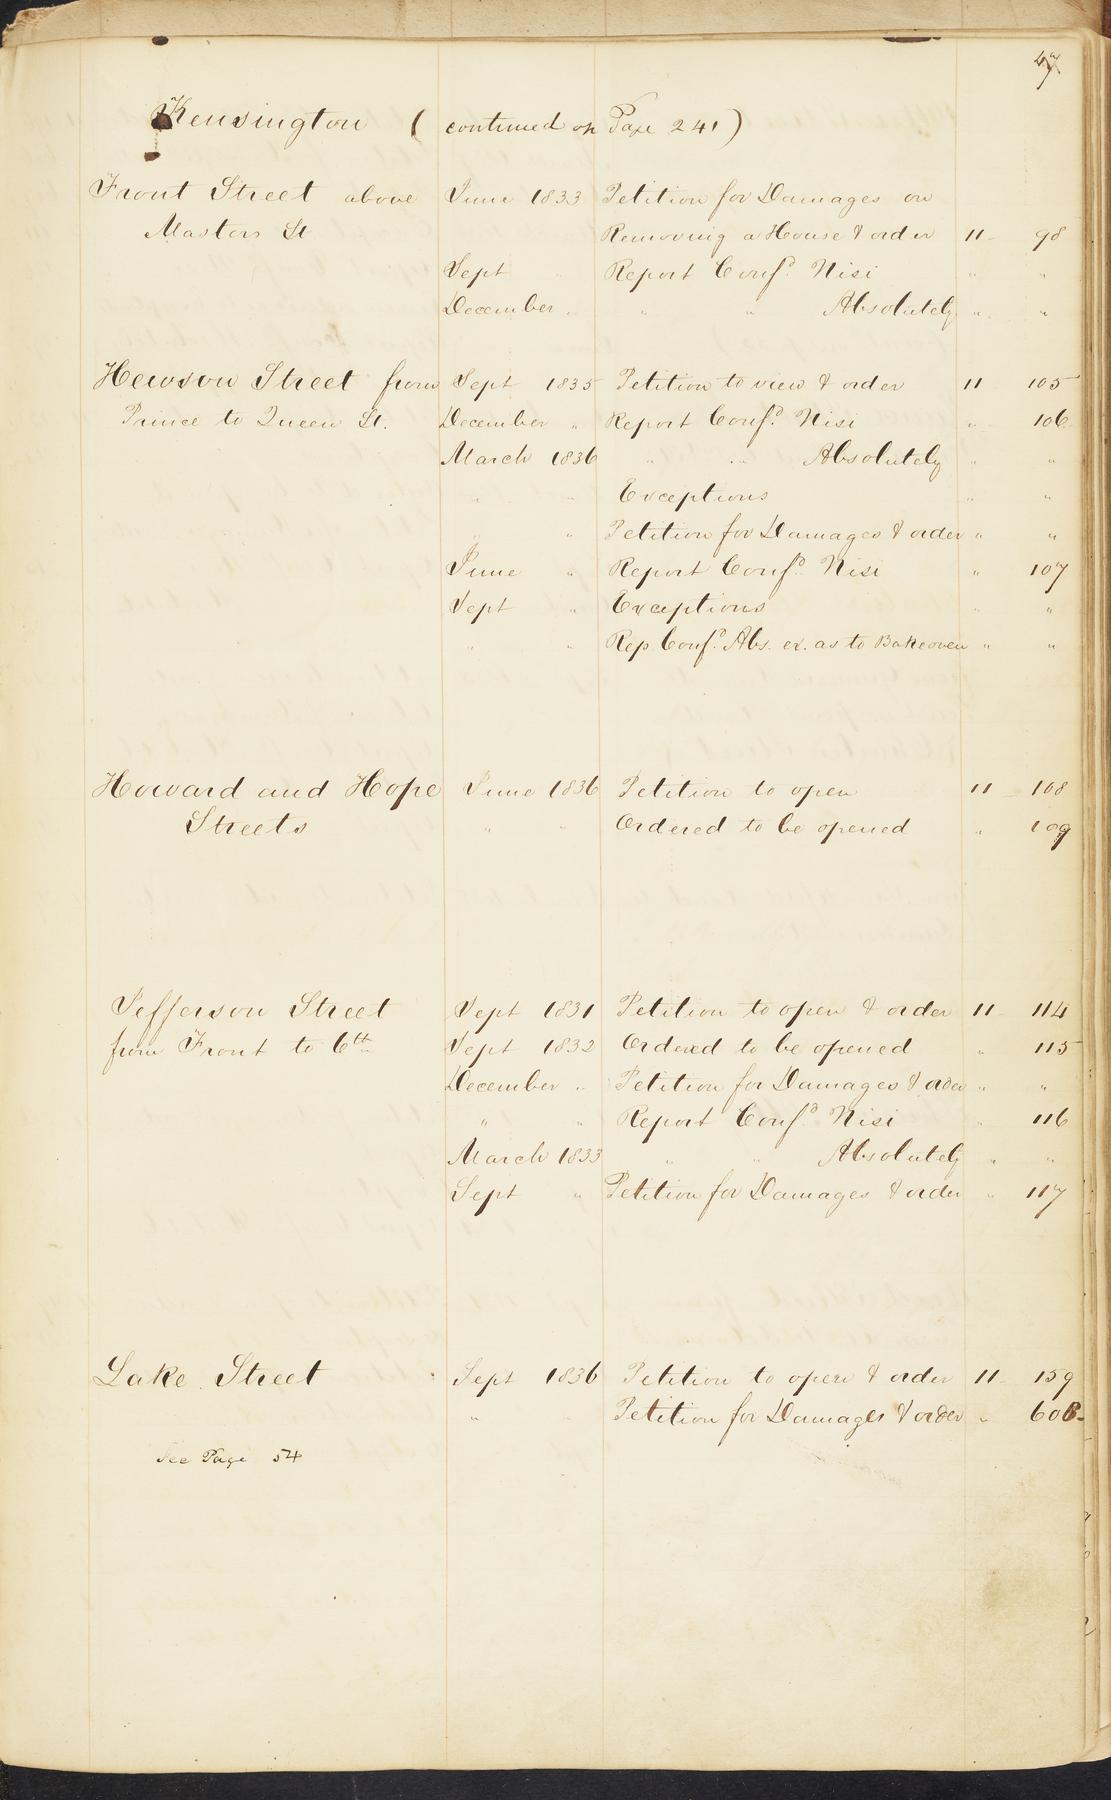 47
Kensington ( continued on Page 241 )
Front Street above June 1833 Petition for Damages on
Masters St Removing a House & order 11 98
Sept " Report Confd. Nisi " "
December " " " Absolutely " "
Hewson Street from Sept 1835 Petition to view & order 11 105
Prince to Queen St. December " Report Confd. Nisi " 106
March 1836 " " Absolutely " "
" " Exceptions " "
" " Petition for Damages & order " "
June " Report Confd. Nisi " 107
Sept " Exceptions " "
" " Rep Confd. Abs. ex. as to Bakeoven " "
Howard and Hope June 1836 Petition to open 11 108
Streets " " Ordered to be opened " 109
Jefferson Street Sept 1831 Petition to open & order 11 114
from Front to 6th Sept 1832 Ordered to be opened " 115
December " Petition for Damages & order " "
" " Report Confd. Nisi " 116
March 1833 " " Absolutely " "
Sept " Petition for Damages & order " 117
Lake Street Sept 1836 Petition to open & order 11 159
" " Petition for Damages & order "
See Page 54